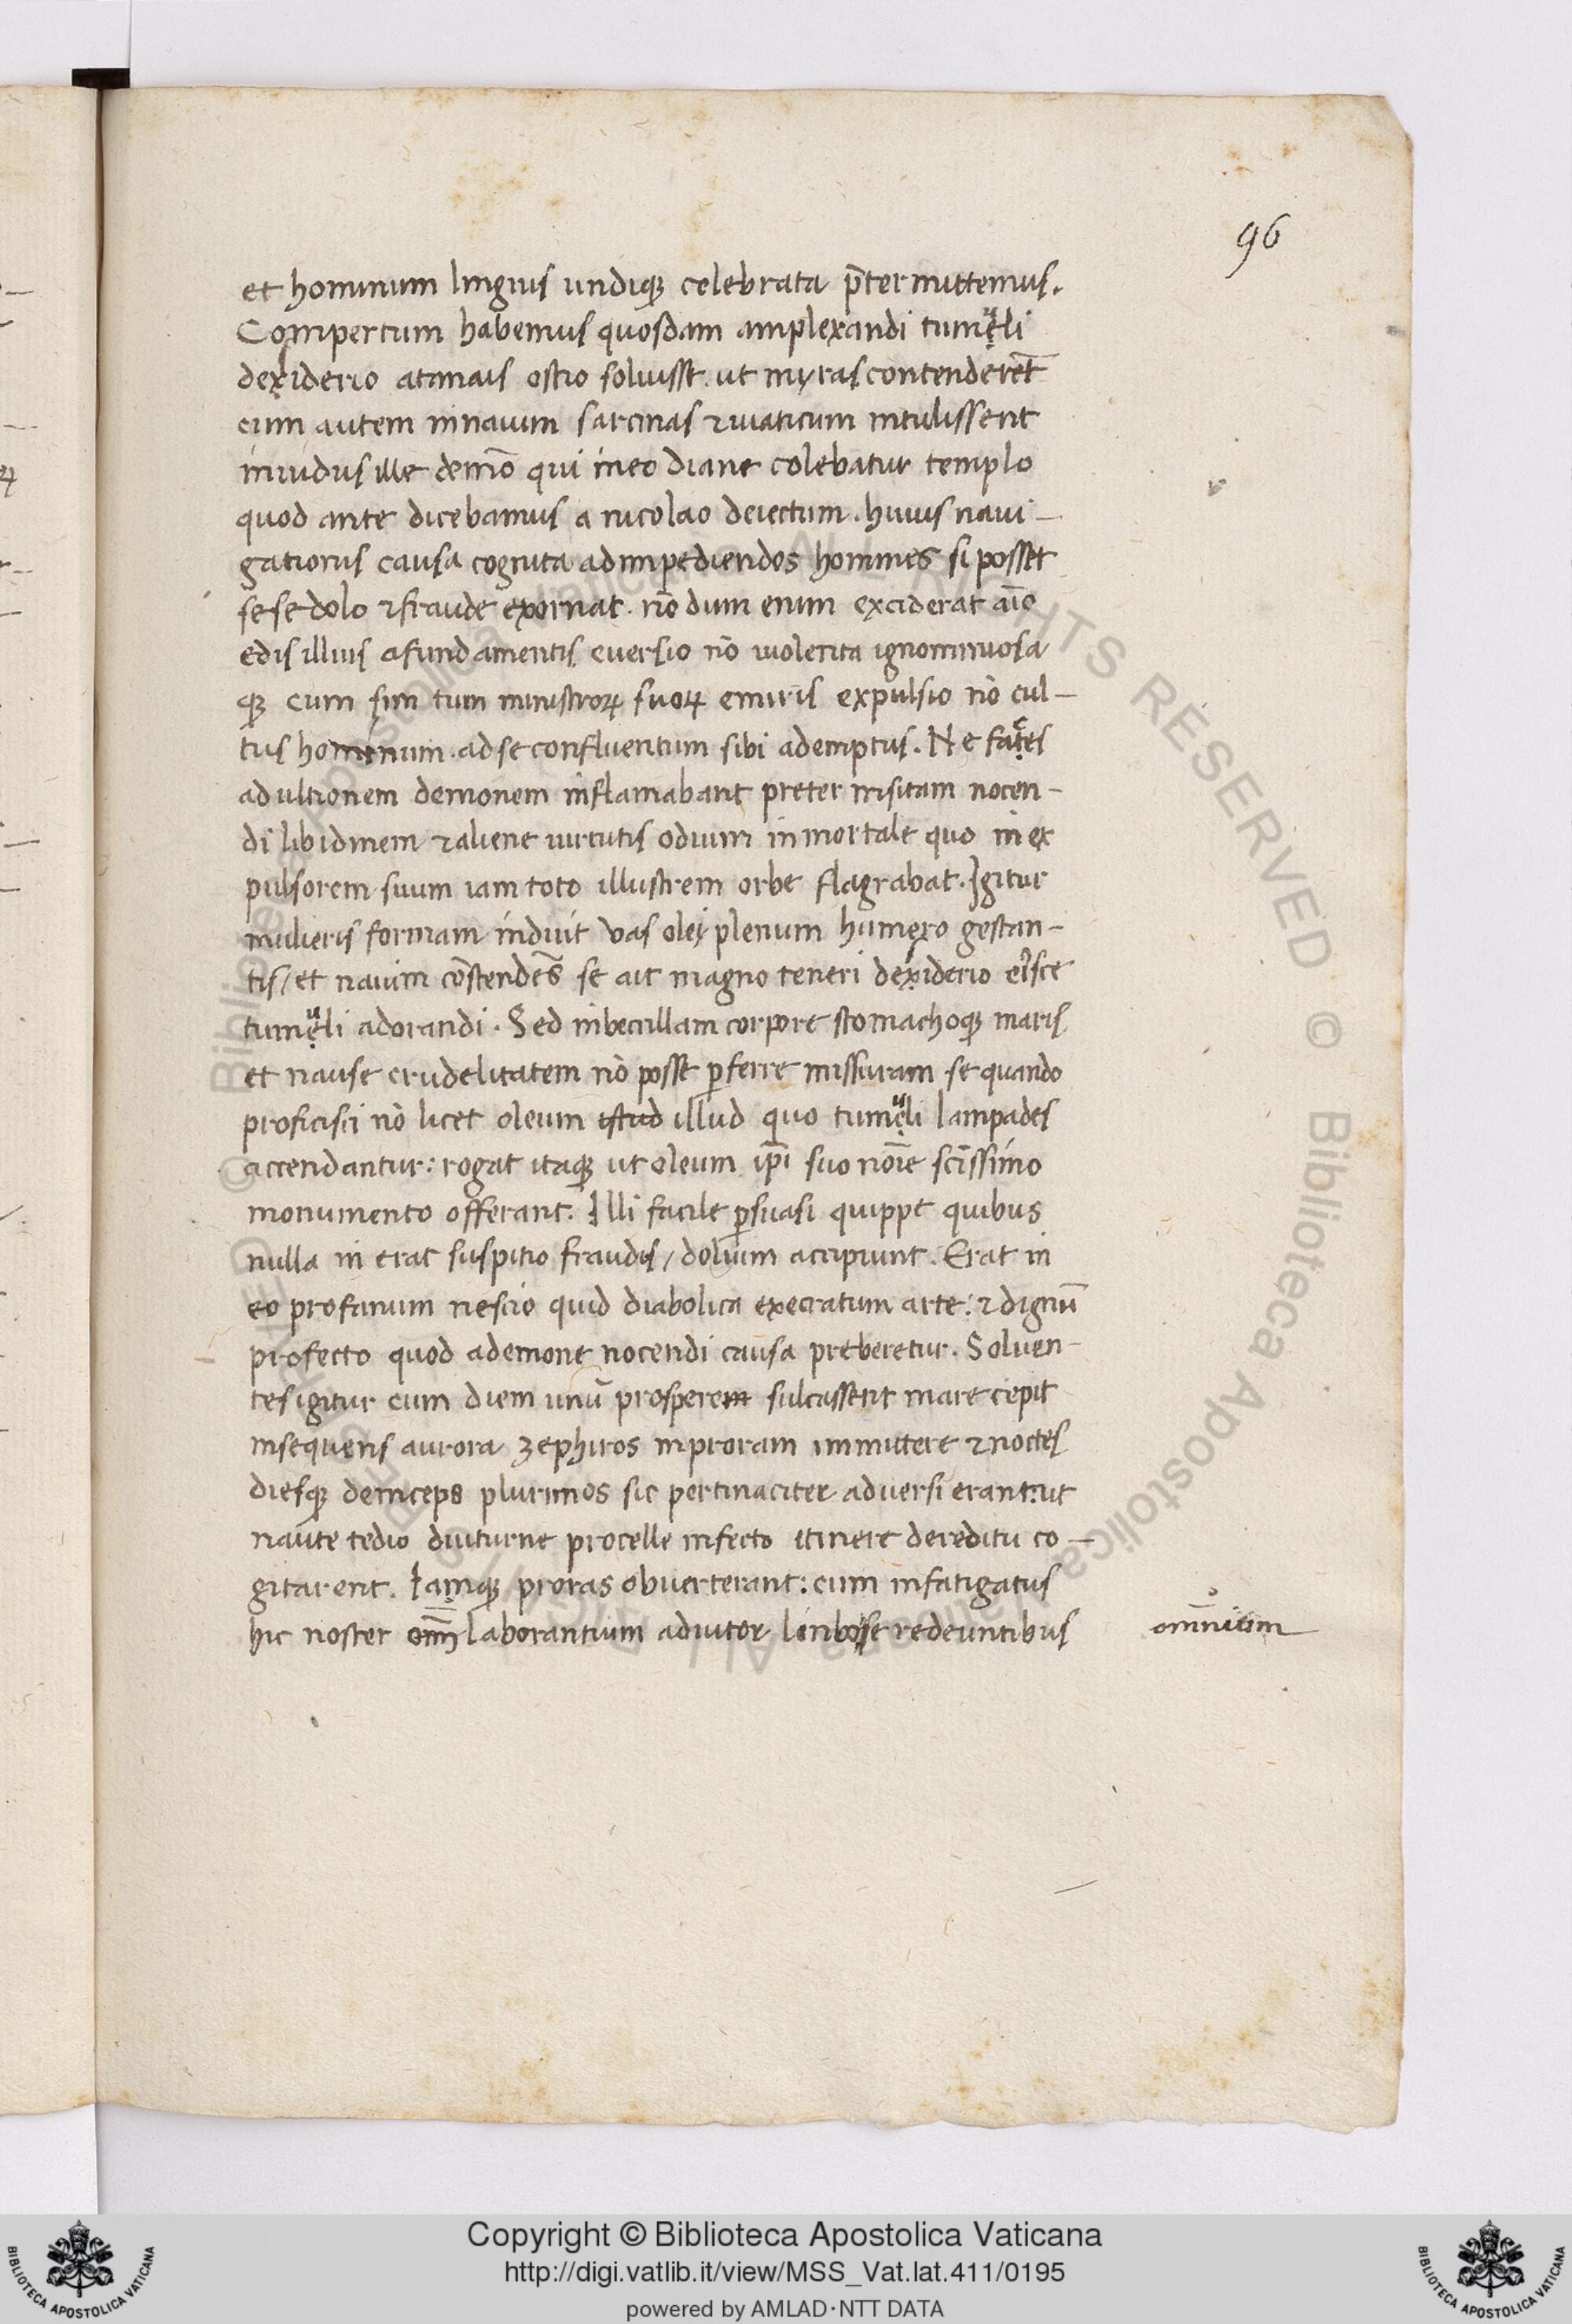 96
et hominum linguis undiqꝫ celebrata p̄termittemus.
Compertum habemus quosdam amplexandi tumuli
desiderio atanais ostio soluisse. ut myras contenderēt
cum autem innauim sarcinas ⁊ uiaticum intulissent
inuidus ille demō qui ineo diane colebatur templo
quod ante dicebamus a nicolao deiectum. huius naui-
gationis causa cognita adimpediendos homines si posset
sese dolo ⁊ fraude exornat. nō dum enim exciderat aīo
edis illius afundamentis euersio nō uiolenta ignominiosa
qꝫ cum sim tum ministroꝝ suoꝝ emiris expulsio nō cul-
tus hominum adse confluentum sibi ademptus. He faces
adultionem demonem inflamabant preter insitam nocen-
di libidinem ⁊ aliene uirtutis odium inmortale quo in ex
pulsorem suum iam toto illustrem orbe flagrabat. Igitur
mulieris formam induit vas olei plenum humero gestan-
tis / et nauim cōstendēs se ait magno teneri desiderio eiīsce
tumuli adorandi. Sed inbecillam corpore stomachoqꝫ maris
et nause crudelitatem nō posse ꝑferre missuram se quando
proficisci nō licet oleum istud illud quo tumuli lampades
accendantur: rogat itaqꝫ ut oleum ip̄i suo nōīe sc̄issimo
monumento offerant. Illi facile ꝑsuasi quippe quibus
nulla in erat suspitio fraudis / dolium accipiunt. Erat in
eo profanum nescio quid diabolica execratum arte: ⁊ dignū
profecto quod ademone nocendi causa preberetur. Soluen-
tes igitur cum diem unū prosperem sulcassent mare cepit
insequens aurora zephiros inproram immittere ⁊ noctes
diesqꝫ deinceps plurimos sic pertinaciter aduersi erant: ut
naute tedio diuturne procelle infecto itinere dereditu co-
gitarent. Iamqꝫ proras obuerterant: cum infatigatus
hic noster om̄ laborantium adiutor linbose redeuntibus
omnium
Copyright © Biblioteca Apostolica Vaticana
http://digi.vatlib.it/view/MSS_Vat.lat.411/0195
powered by AMLAD·NTT DATA